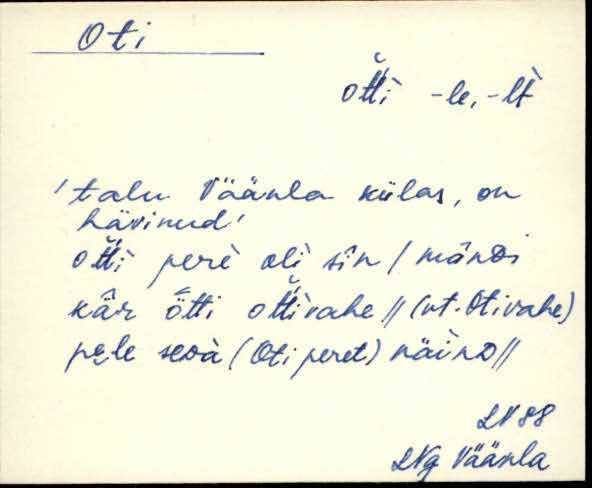 Oti
ot̆t̀i -le, -lt̀
'talu Väänla külas, on
hävinud'
ot̆t̀i perè oli sîn / mänDi
kä̂r ōtti ot̆t̀ivahe // (vt. Otivahe)
pe̬le seDà (Oti peret) näìnD //
LN 88
LNg Väänla